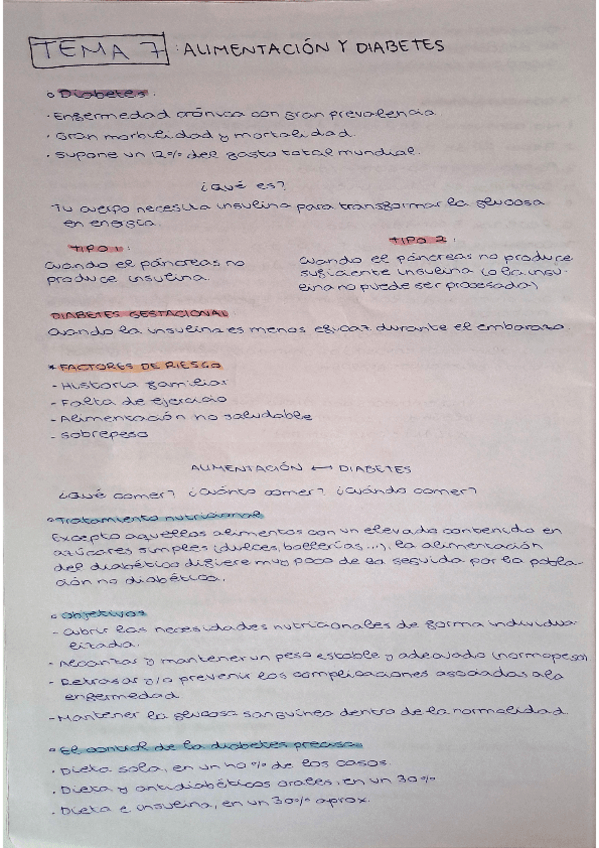 TEMA 7: ALIMENTACIÓN Y DIABETES
○ Diabetes.
· Enfermedad crónica con gran prevalencia
· Gran morbilidad y mortalidad.
· Supone un 12% del gasto total mundial.
¿Qué es?
Tu cuerpo necesita insulina para transformar la glucosa
en energía.
TIPO 1:
Cuando el páncreas no
produce insulina.
TIPO 2:
Cuando el páncreas no produce
suficiente insulina (o la insu-
lina no puede ser procesada)
DIABETES GESTACIONAL
Cuando la insulina es menos eficaz durante el embarazo.
* FACTORES DE RIESGO
- Historia familiar
- Falta de ejercicio
- Alimentación no saludable
- Sobrepeso
ALIMENTACIÓN ↔ DIABETES
¿Qué comer? ¿Cuánto comer? ¿Cuándo comer?
○ Tratamiento nutricional
Excepto aquellos alimentos con un elevado contenido en
azúcares simples (dulces, bollerías...), la alimentación
del diabético difiere muy poco de la seguida por la pobla-
ción no diabética.
○ Objetivos
- Cubrir las necesidades nutricionales de forma individua-
lizada.
- Alcanzar y mantener un peso estable y adecuado (normopeso)
- Retrasar y/o prevenir las complicaciones asociadas a la
enfermedad
- Mantener la glucosa sanguínea dentro de la normalidad
○ El control de la diabetes precisa:
· Dieta sola, en un 40% de los casos.
· Dieta y antidiabéticos orales, en un 30%
· Dieta e insulina, en un 30% aprox.